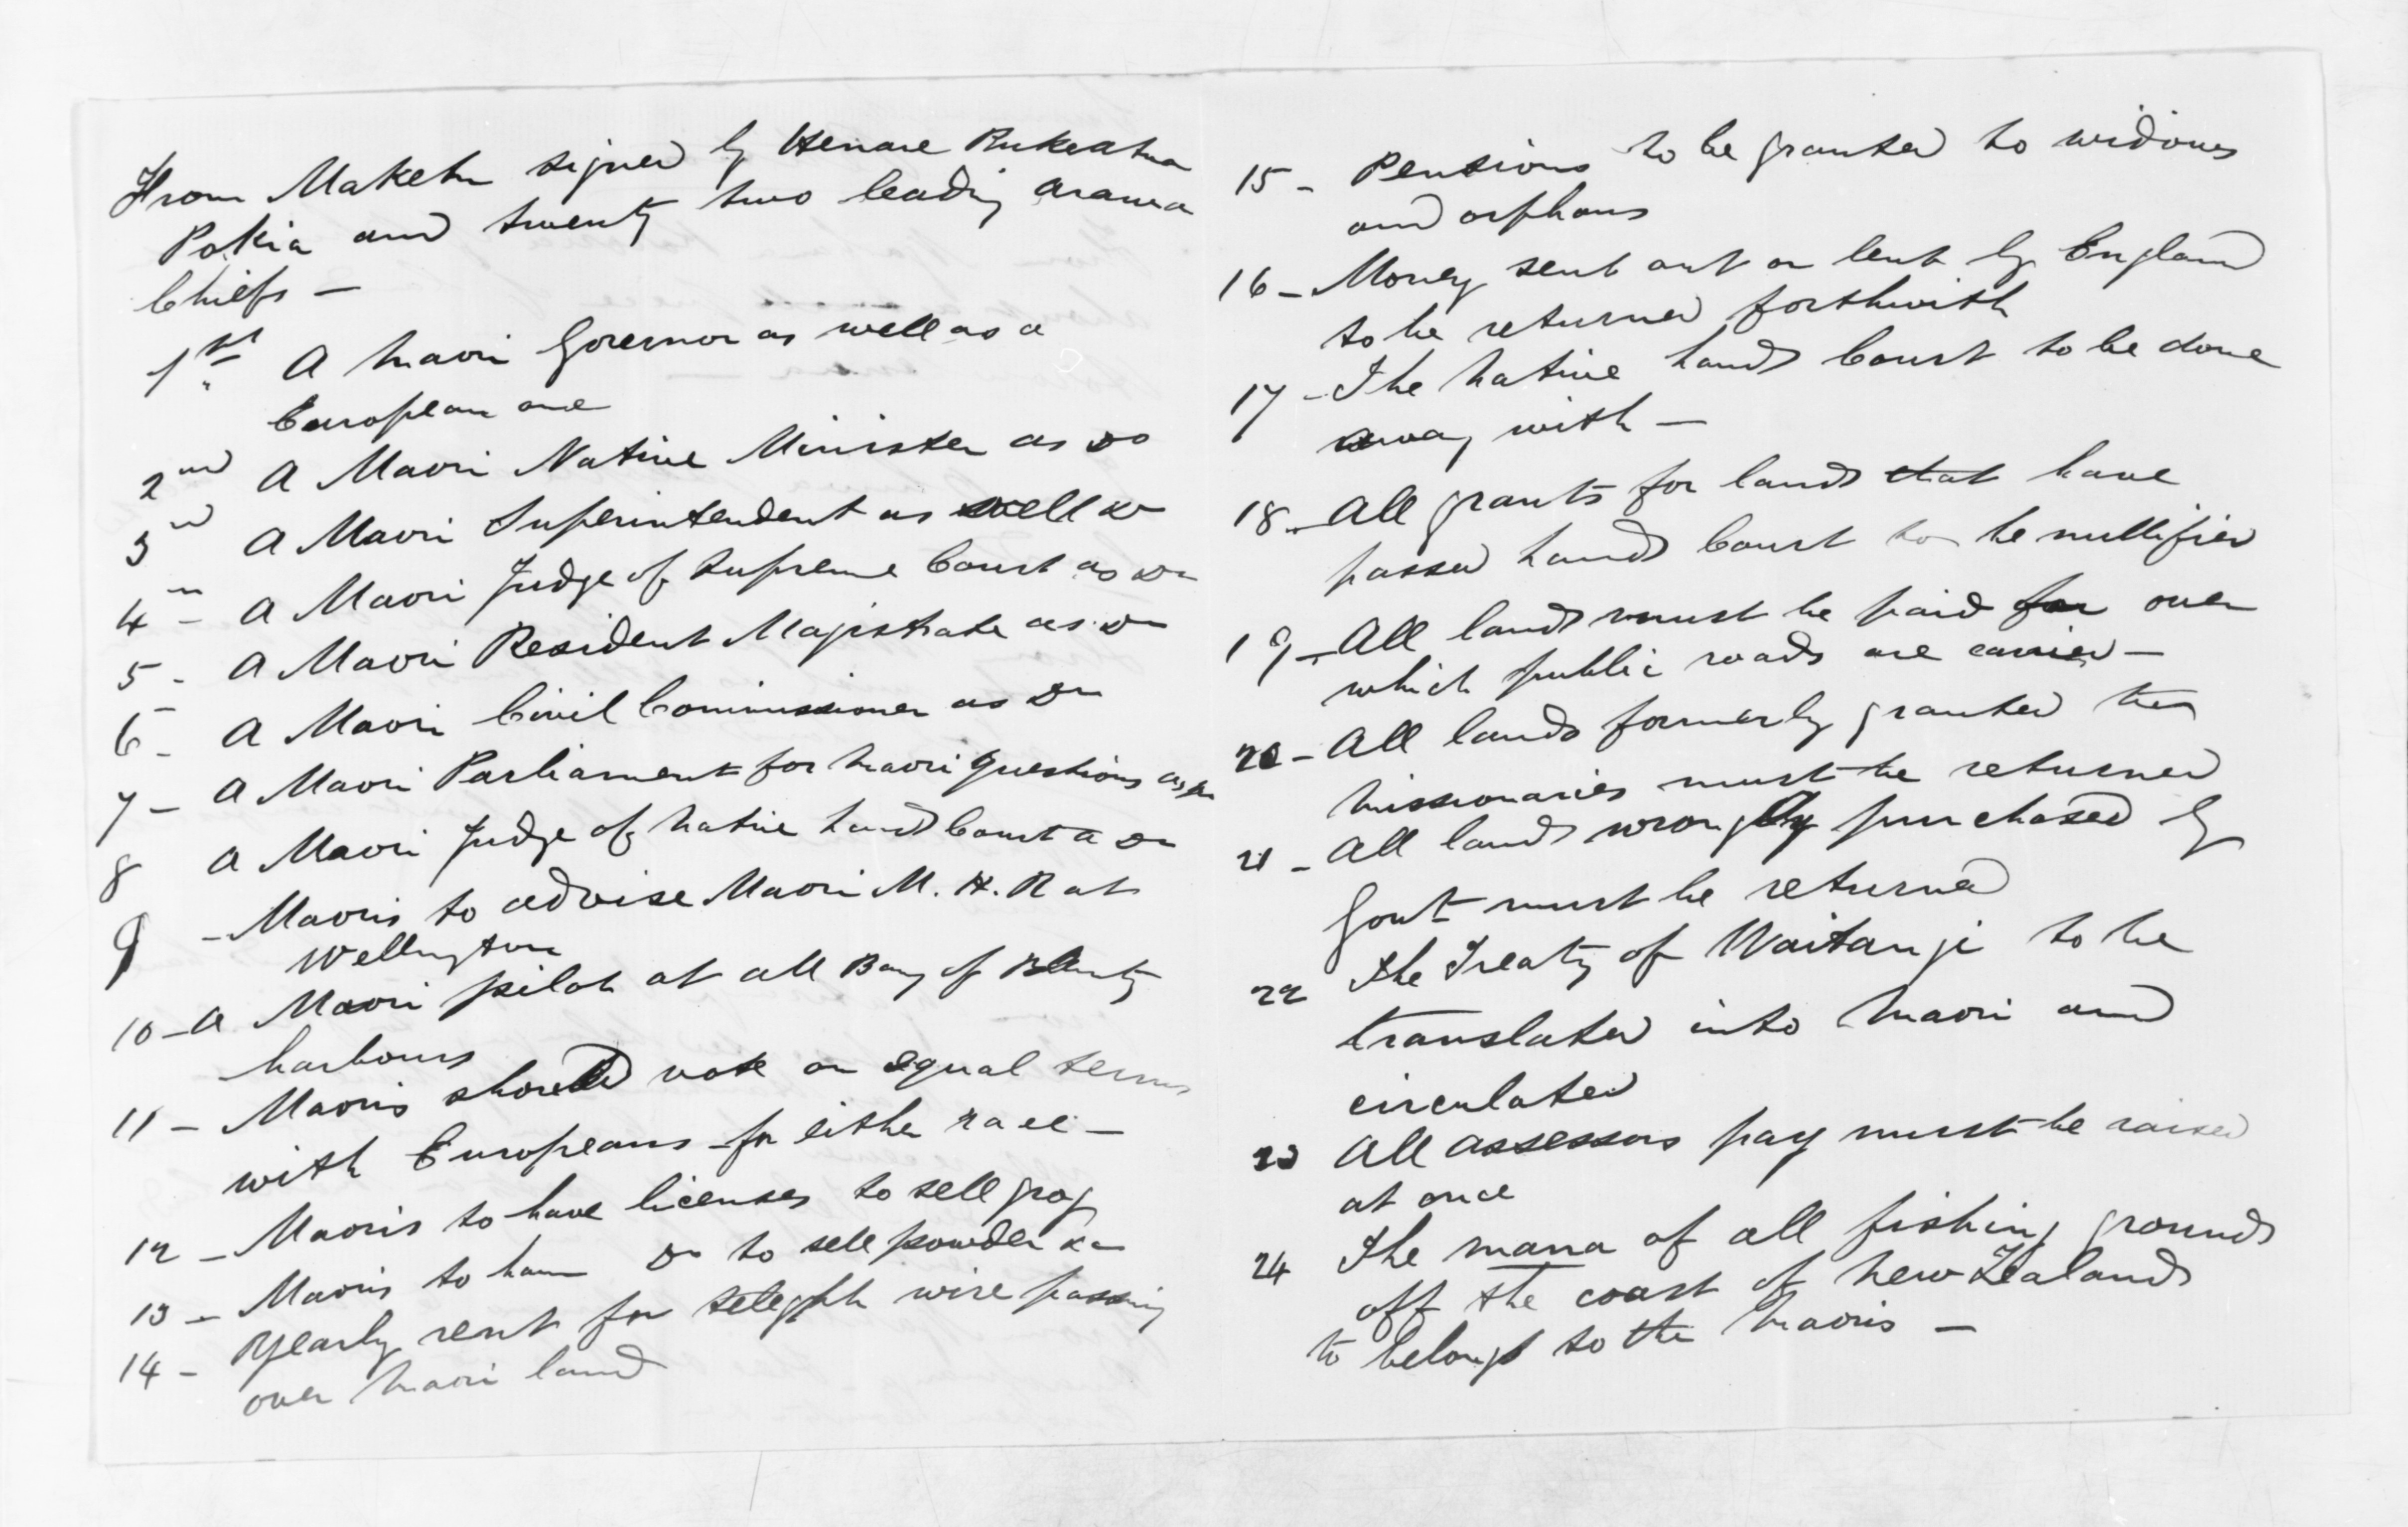 From Maketu signed by Henare Pukuatua
Pokia and twenty two leading Arawa
Chiefs —
1st A Maori Governor as well as a
European one
2nd A Maori Native Minister as do
3rd A Maori Superintendent as well do
4 - A Maori Judge of Supreme Court as do
5 - A Maori Resident Magistrate as do
6 - A Maori Civil Commissioner as do
7 - A Maori Parliament for Maori Questions as do
8 A Maori Judge of Native Land Court a do
9 - Maoris to advise Maori M. H. R at
Wellington
10 - A Maori pilot at all Bay of Plenty
harbours
11 - Maoris should vote on equal terms
with Europeans for either race —
12 - Maoris to have licenses to sell grog
13 - Maoris to have do to sell powder &c
14 - Yearly rent for telegph wire passing
over Maori land
15 - Pensions to be granted to widows
and orphans
16 - Money sent out or lent by England
to be returned forthwith
17 - The Native Land Court to be done
away with —
18 - All grants for land that have
passed Land Court to be nullified
19 - All land must be paid for over
which public roads are carried —
20 - All lands formerly granted the
Missionaries must be returned
21 - All land wrongly purchased by
Govt must be returned
22 The Treaty of Waitangi to be
translated into Maori and
circulated
23 All assessors pay must be raised
at once
24 The mana of all fishing grounds
off the coast of New Zealand
to belong to the Maoris —